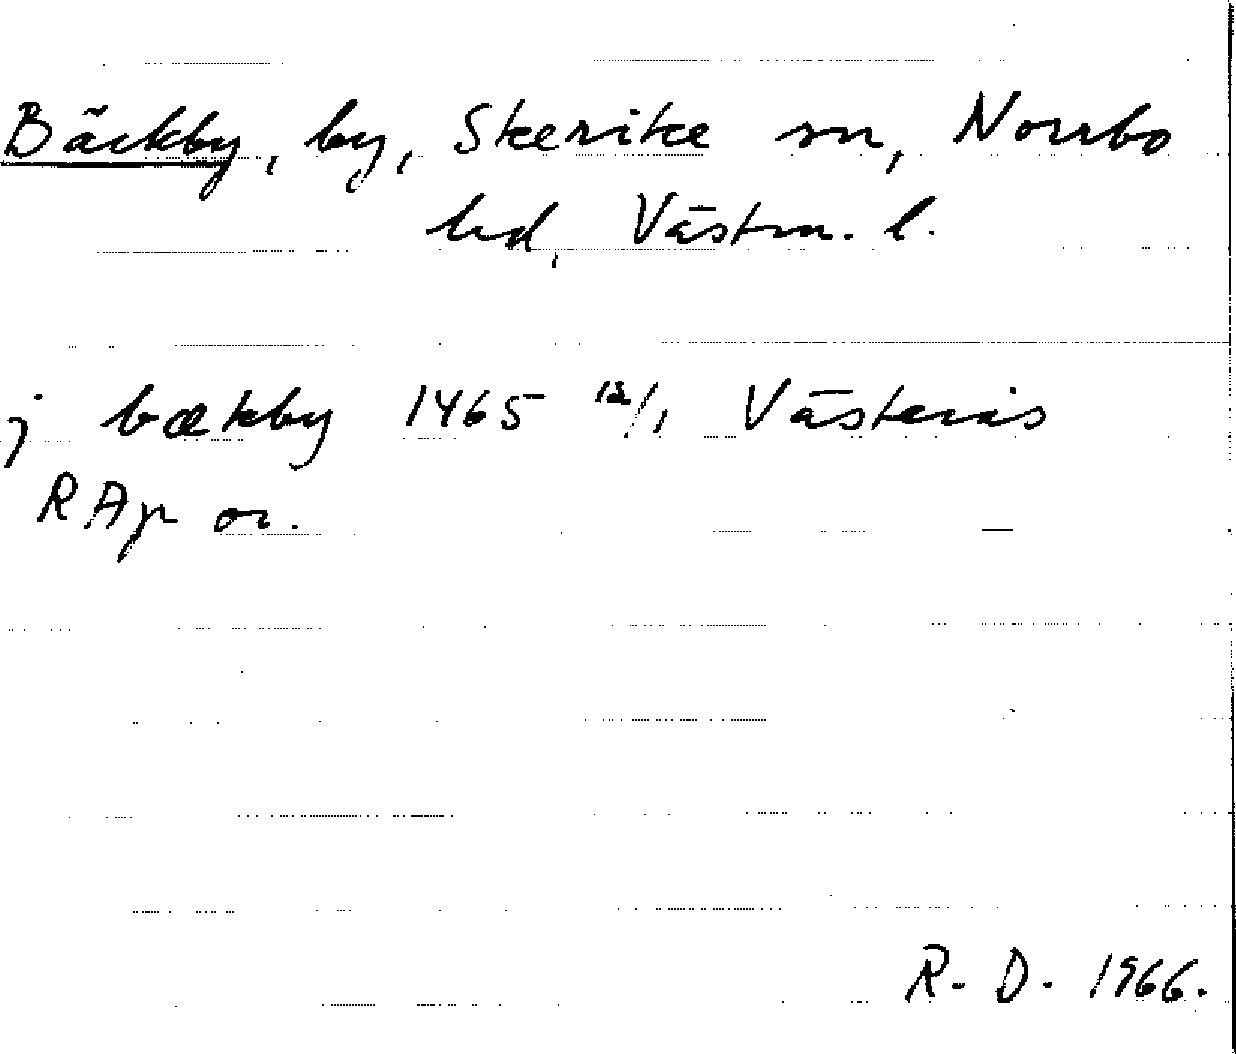 Bäckby, by, Skerike sn, Norrbo
hd, Västm. l.
j bækby 1465 12/1 Västerås
RAp or.
R. D. 1966.